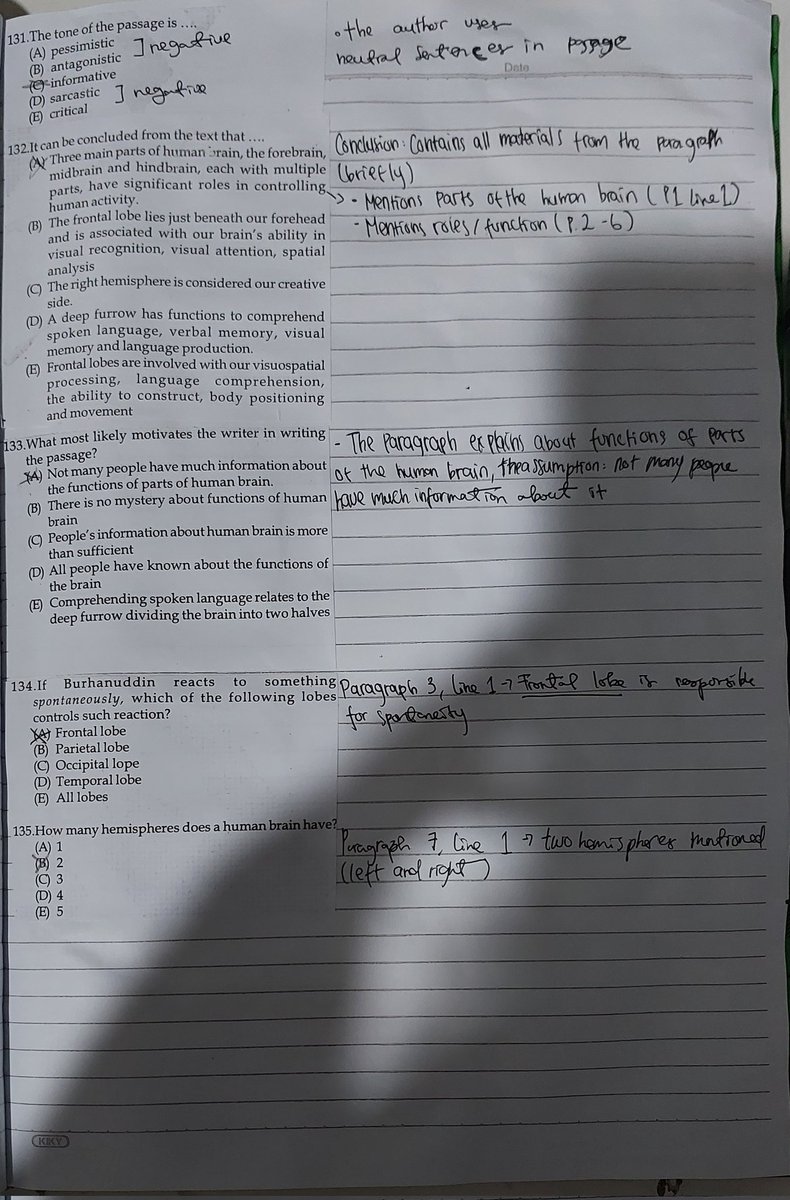 131.The tone of the passage is ....
(A) pessimistic
(B) antagonistic
] negative
(C) informative
(D) sarcastic
(E) critical
] negative
• the author uses
neutral sentences in
Date
132.It can be concluded from the text that ....
(A) Three main parts of human brain, the forebrain,
midbrain and hindbrain, each with multiple
parts, have significant roles in controlling
human activity.
(B) The frontal lobe lies just beneath our forehead
and is associated with our brain's ability in
visual recognition, visual attention, spatial
analysis
(C) The right hemisphere is considered our creative
side.
(D) A deep furrow has functions to comprehend
spoken language, verbal memory, visual
memory and language production.
(E) Frontal lobes are involved with our visuospatial
processing, language comprehension,
the ability to construct, body positioning
and movement
Conclusion: Contains all materials from the paragraph
(briefly)
→ - Mentions parts of the human brain (P1 line 1)
- Mentions roles / function (P. 2 - 6)
133.What most likely motivates the writer in writing
the passage?
(A) Not many people have much information about
the functions of parts of human brain.
(B) There is no mystery about functions of human
brain
(C) People's information about human brain is more
than sufficient
(D) All people have known about the functions of
the brain
(E) Comprehending spoken language relates to the
deep furrow dividing the brain into two halves
- The Paragraph explains about functions of parts
of the human brain, the assumption: not many people
have much information about it
134.If Burhanuddin reacts to something
spontaneously, which of the following lobes
controls such reaction?
(A) Frontal lobe
(B) Parietal lobe
(C) Occipital lope
(D) Temporal lobe
(E) All lobes
Paragraph 3, line 1 → Frontal lobe is
for
135.How many hemispheres does a human brain have?
(A) 1
(B) 2
(C) 3
(D) 4
(E) 5
Paragraph 7, line 1 → two hemispheres mentioned
(left and right)
KIKY